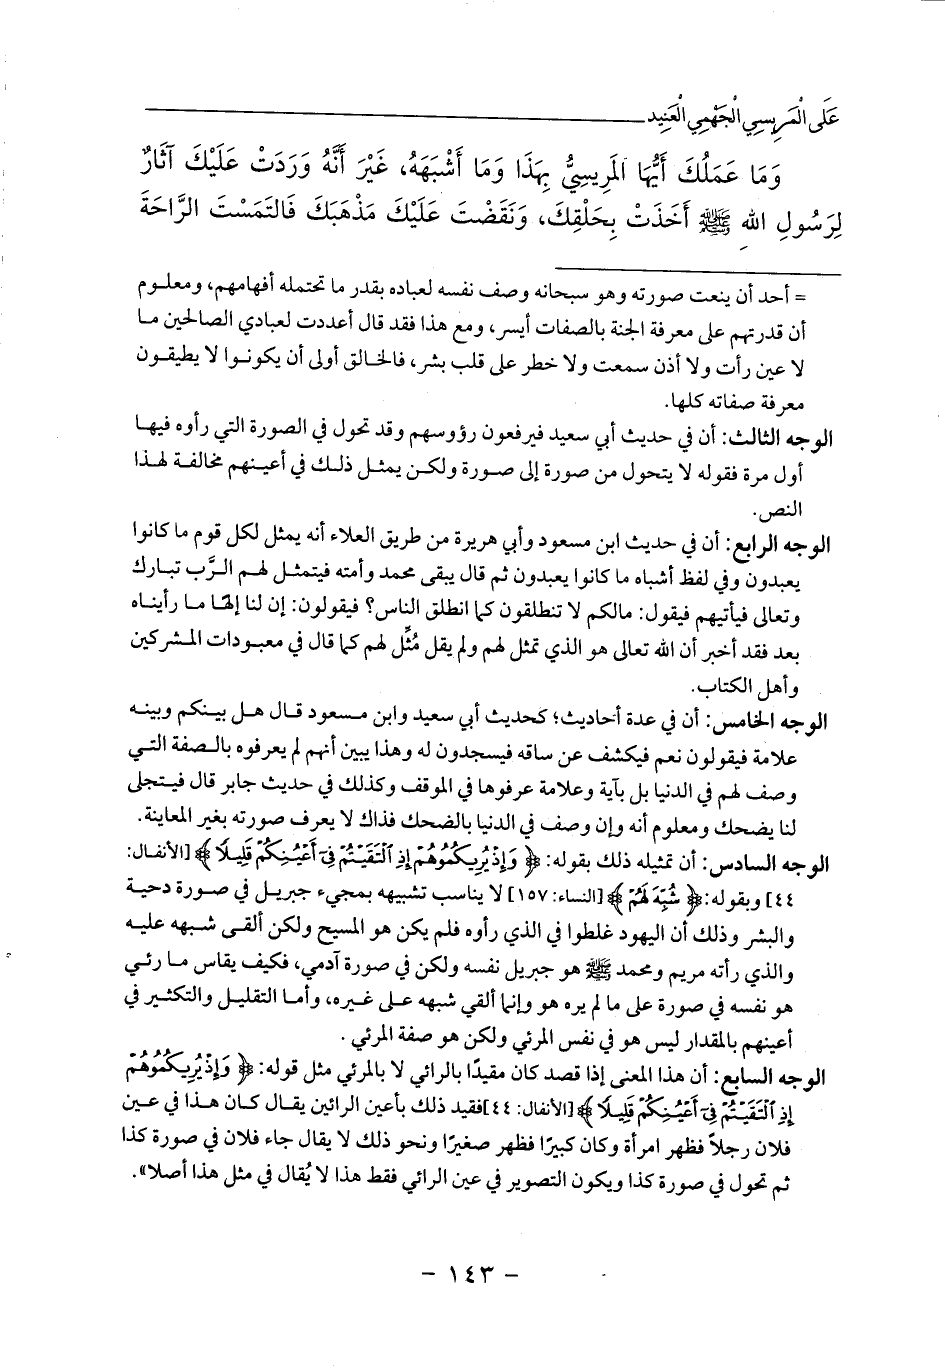 عَلَى الْمَرِيسِي الْجَهْمِي الْعَنِيد
وَمَا عَمَلُكَ أَيُّهَا المَرِيسِيُّ بِهَذَا وَمَا أَشْبَهَهُ، غَيْرَ أَنَّهُ وَرَدَتْ عَلَيْكَ آثَارٌ
لِرَسُولِ اللهِ ﷺ أَخَذَتْ بِحَلْقِكَ، وَنَقَضَتْ عَلَيْكَ مَذْهَبَكَ فَالتَمَسْتَ الرَّاحَةَ
= أحد أن ينعت صورته وهو سبحانه وصف نفسه لعباده بقدر ما تحتمله أفهامهم، ومعلوم
أن قدرتهم على معرفة الجنة بالصفات أيسر، ومع هذا فقد قال أعددت لعبادي الصالحين ما
لا عين رأت ولا أذن سمعت ولا خطر على قلب بشر، فالخالق أولى أن يكونوا لا يطيقون
معرفة صفاته كلها.
الوجه الثالث: أن في حديث أبي سعيد فيرفعون رؤوسهم وقد تحول في الصورة التي رأوه فيها
أول مرة فقوله لا يتحول من صورة إلى صورة ولكن يمثل ذلك في أعينهم مخالفة لهذا
النص.
الوجه الرابع: أن في حديث ابن مسعود وأبي هريرة من طريق العلاء أنه يمثل لكل قوم ما كانوا
يعبدون وفي لفظ أشباه ما كانوا يعبدون ثم قال يبقى محمد وأمته فيتمثل لهم الرَّب تبارك
وتعالى فيأتيهم فيقول: مالكم لا تنطلقون كما انطلق الناس؟ فيقولون: إن لنا إلهًا ما رأيناه
بعد فقد أخبر أن الله تعالى هو الذي تمثل لهم ولم يقل مُثِّل لهم كما قال في معبودات المشركين
وأهل الكتاب.
الوجه الخامس: أن في عدة أحاديث؛ كحديث أبي سعيد وابن مسعود قال هل بينكم وبينه
علامة فيقولون نعم فيكشف عن ساقه فيسجدون له وهذا يبين أنهم لم يعرفوه بالصفة التي
وصف لهم في الدنيا بل بآية وعلامة عرفوها في الموقف وكذلك في حديث جابر قال فيتجلى
لنا يضحك ومعلوم أنه وإن وصف في الدنيا بالضحك فذاك لا يعرف صورته بغير المعاينة.
الوجه السادس: أن تمثيله ذلك بقوله: ﴿وَإِذْ يُرِيكُمُوهُمْ إِذِ ٱلْتَقَيْتُمْ فِىٓ أَعْيُنِكُمْ قَلِيلًا﴾ [الأنفال:
٤٤] وبقوله: ﴿شُبِّهَ لَهُمْ﴾ [النساء: ١٥٧] لا يناسب تشبيهه بمجيء جبريل في صورة دحية
والبشر وذلك أن اليهود غلطوا في الذي رأوه فلم يكن هو المسيح ولكن ألقى شبهه عليه
والذي رأته مريم ومحمد ﷺ هو جبريل نفسه ولكن في صورة آدمي، فكيف يقاس ما رئي
هو نفسه في صورة على ما لم يره هو وإنما ألقي شبهه على غيره، وأما التقليل والتكثير في
أعينهم بالمقدار ليس هو في نفس المرئي ولكن هو صفة المرئي .
الوجه السابع: أن هذا المعنى إذا قصد كان مقيدًا بالرائي لا بالمرئي مثل قوله: ﴿وَإِذْ يُرِيكُمُوهُمْ
إِذِ ٱلْتَقَيْتُمْ فِىٓ أَعْيُنِكُمْ قَلِيلًا﴾ [الأنفال: ٤٤]فقيد ذلك بأعين الرائين يقال كان هذا في عين
فلان رجلاً فظهر امرأة وكان كبيرًا فظهر صغيرًا ونحو ذلك لا يقال جاء فلان في صورة كذا
ثم تحول في صورة كذا ويكون التصوير في عين الرائي فقط هذا لا يُقال في مثل هذا أصلا».
- ١٤٣ -